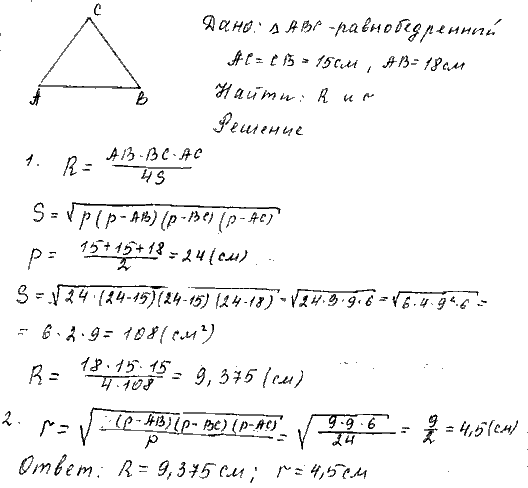 C
A
B
Дано: △ABC - равнобедренный
AC = CB = 15 см, AB = 18 см
Найти: R и r
Решение
1. R = AB·BC·AC / 4S
S = √(p(p-AB)(p-BC)(p-AC))
p = (15+15+18)/2 = 24 (см)
S = √(24·(24-15)(24-15)(24-18)) = √(24·9·9·6) = √(6·4·9²·6) =
= 6·2·9 = 108 (см²)
R = 18·15·15 / 4·108 = 9,375 (см)
2. r = √((p-AB)(p-BC)(p-AC) / p) = √(9·9·6 / 24) = 9/2 = 4,5 (см)
Ответ: R = 9,375 см; r = 4,5 см